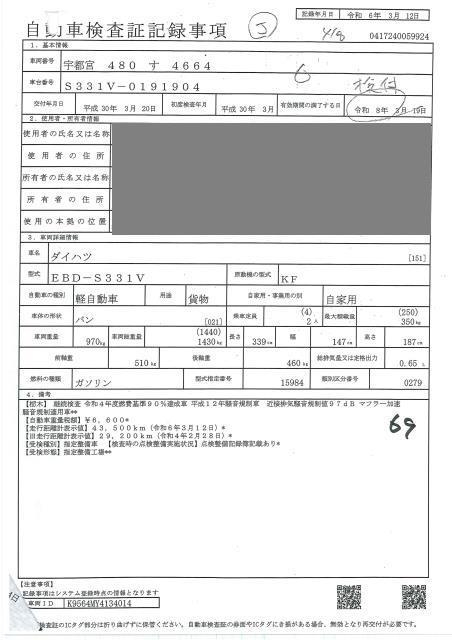 記録年月日 令和 6年 3月 12日
自動車検査証記録事項 J 418 0417240059924
1. 基本情報
車両番号 宇都宮 480 す 4664
車台番号 S331V-0191904 検付
交付年月日 平成 30年 3月 20日 初度検査年月 平成 30年 3月 有効期間の満了する日 令和 8年 3月 19日
2. 使用者・所有者情報
使用者の氏名又は名称
使用者の住所
所有者の氏名又は名称
所有者の住所
使用の本拠の位置
3. 車両詳細情報
車名 ダイハツ [151]
型式 EBD-S331V 原動機の型式 KF
自動車の種別 軽自動車 用途 貨物 自家用・事業用の別 自家用
車体の形状 バン [021] 乗車定員 (4) 2人 最大積載量 (250) 350kg
車両重量 970kg 車両総重量 (1440) 1430kg 長さ 339cm 幅 147cm 高さ 187cm
前軸重 510kg 後軸重 460kg 総排気量又は定格出力 0.65 L
燃料の種類 ガソリン 型式指定番号 15984 類別区分番号 0279
4. 備考
[栃木] 継続検査 令和4年度燃費基準90%達成車 平成12年騒音規制車 近接排気騒音規制値97dB マフラー加速
騒音規制適用車**
[自動車重量税額] ¥6,600*
[走行距離計表示値] 43,500km (令和6年3月12日)*
[旧走行距離計表示値] 29,200km (令和4年2月28日)*
[受検種別] 指定整備車 [検査時の点検整備実施状況] 点検整備記録簿記載あり*
[受検形態] 指定整備工場**
69
【注意事項】
記録事項はシステム登録時点の情報となります
車両ID K9564MY4134014
検査証のICタグ部分は折り曲げずに保管ください。自動車検査証の券面やICタグにき損がある場合、無効となり再交付が必要です。